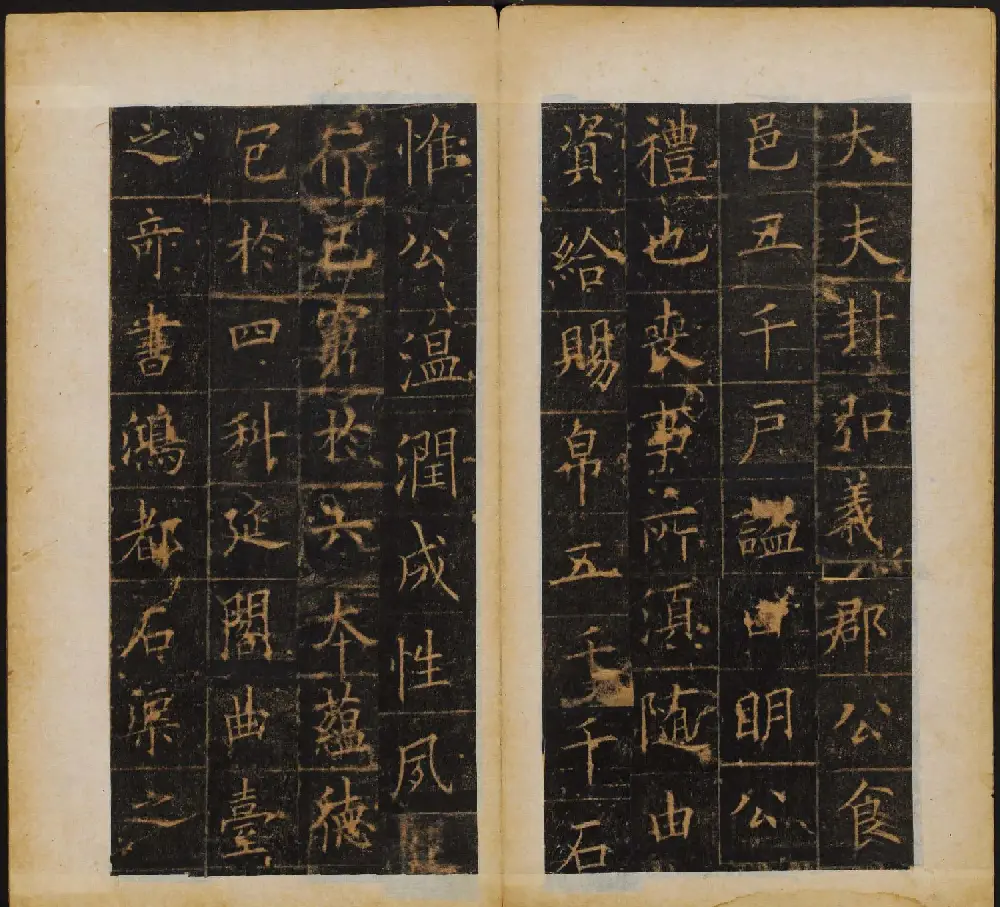 大夫封弘義郡公食
邑五千户諡曰明公
禮也喪事所須隨由
資給賜帛五千千石
惟公温潤成性夙
行己窮於六本蘊德
包於四科延閣曲臺
之奇書鴻都石渠之